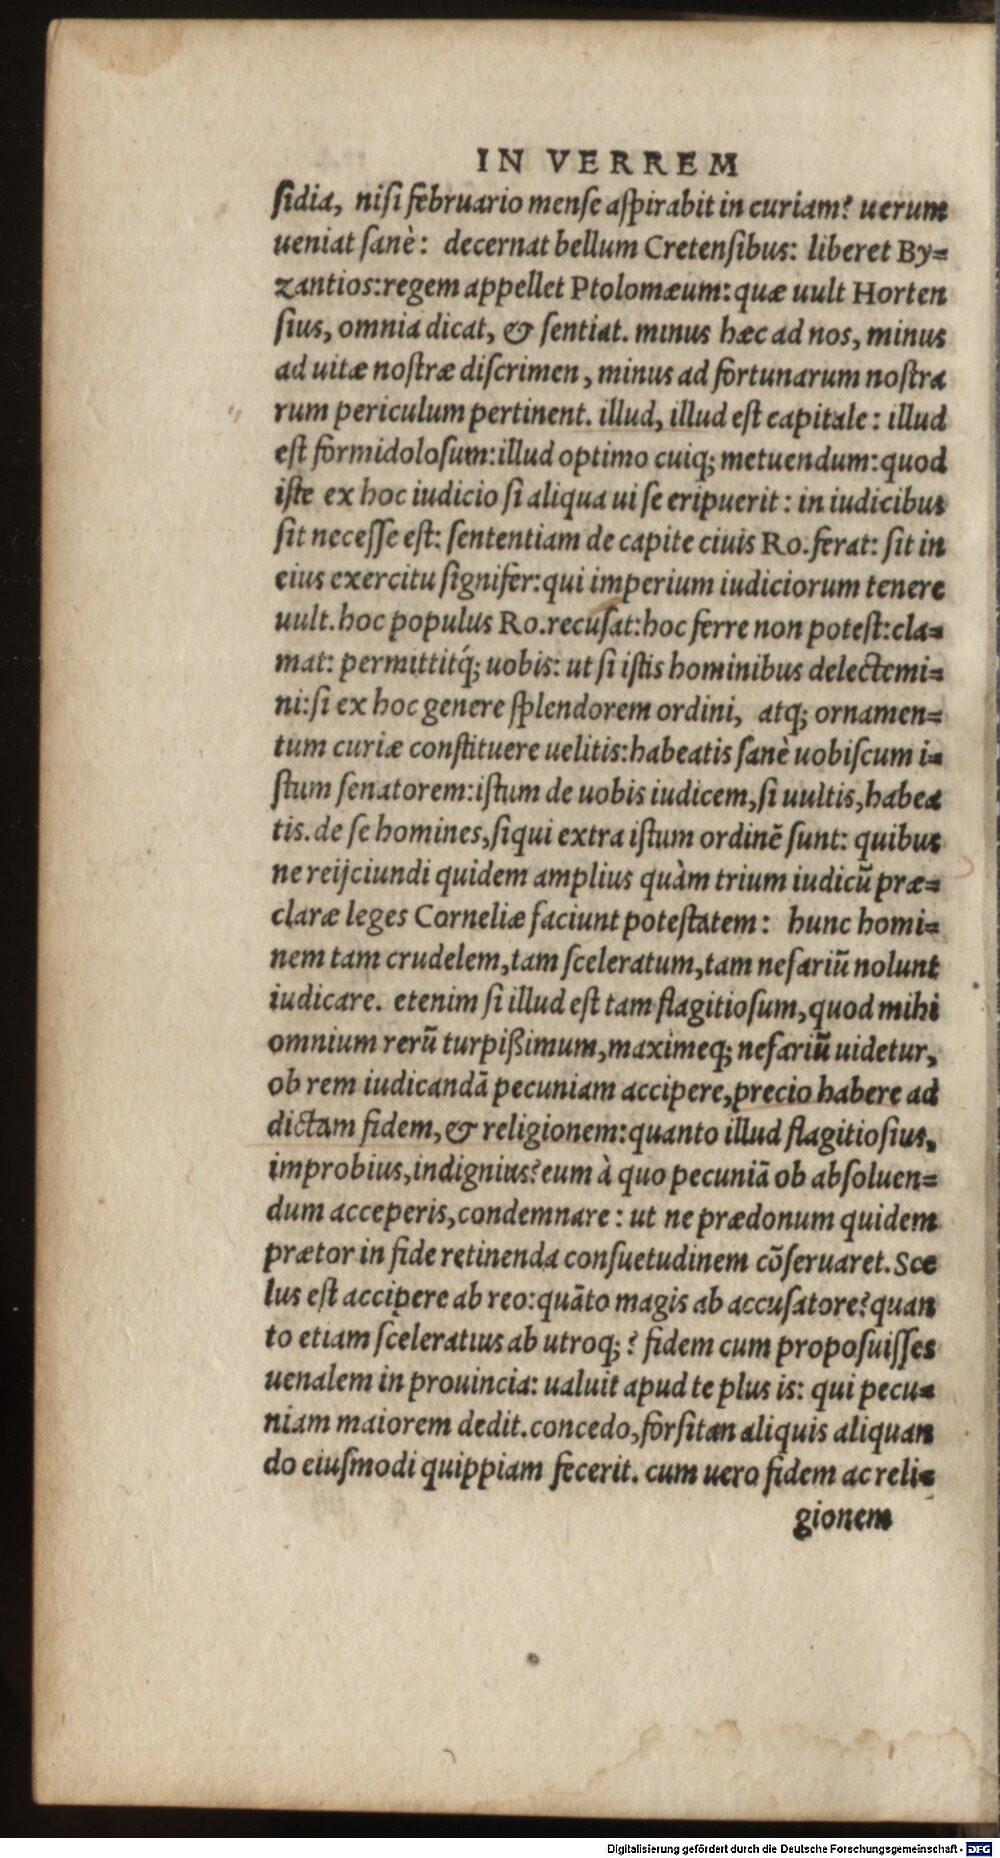 IN VERREM
ſidia, niſi februario menſe aſpirabit in curiam? uerum
ueniat ſanè: decernat bellum Cretenſibus: liberet By=
zantios:regem appellet Ptolomæum:quæ uult Horten
ſius, omnia dicat, & ſentiat. minus hæc ad nos, minus
ad uitæ noſtræ diſcrimen, minus ad fortunarum noſtra
rum periculum pertinent. illud, illud eſt capitale: illud
eſt formidoloſum:illud optimo cuiq; metuendum:quod
iſte ex hoc iudicio ſi aliqua ui ſe eripuerit: in iudicibus
ſit neceſſe eſt: ſententiam de capite ciuis Ro.ferat: ſit in
eius exercitu ſignifer:qui imperium iudiciorum tenere
uult.hoc populus Ro.recuſat:hoc ferre non poteſt:cla=
mat: permittitq́; uobis: ut ſi iſtis hominibus delectemi=
ni:ſi ex hoc genere ſplendorem ordini, atq; ornamen=
tum curiæ conſtituere uelitis:habeatis ſanè uobiſcum i=
ſtum ſenatorem:iſtum de uobis iudicem,ſi uultis,habea
tis.de ſe homines,ſiqui extra iſtum ordinẽ ſunt: quibus
ne reijciundi quidem amplius quàm trium iudicũ præ=
claræ leges Corneliæ faciunt poteſtatem: hunc homi=
nem tam crudelem,tam ſceleratum,tam nefariũ nolunt
iudicare. etenim ſi illud eſt tam flagitioſum,quod mihi
omnium rerũ turpißimum,maximeq; nefariũ uidetur,
ob rem iudicandã pecuniam accipere,precio habere ad
dictam fidem,& religionem:quanto illud flagitioſius,
improbius,indignius?eum à quo pecuniã ob abſoluen=
dum acceperis,condemnare: ut ne prædonum quidem
prætor in fide retinenda conſuetudinem cõſeruaret.Sce
lus eſt accipere ab reo:quãto magis ab accuſatore?quan
to etiam ſceleratius ab utroq;? fidem cum propoſuiſſes
uenalem in prouincia: ualuit apud te plus is: qui pecu=
niam maiorem dedit.concedo,forſitan aliquis aliquan
do eiuſmodi quippiam fecerit. cum uero fidem ac reli=
gionem
Digitalisierung gefördert durch die Deutsche Forschungsgemeinschaft - DFG